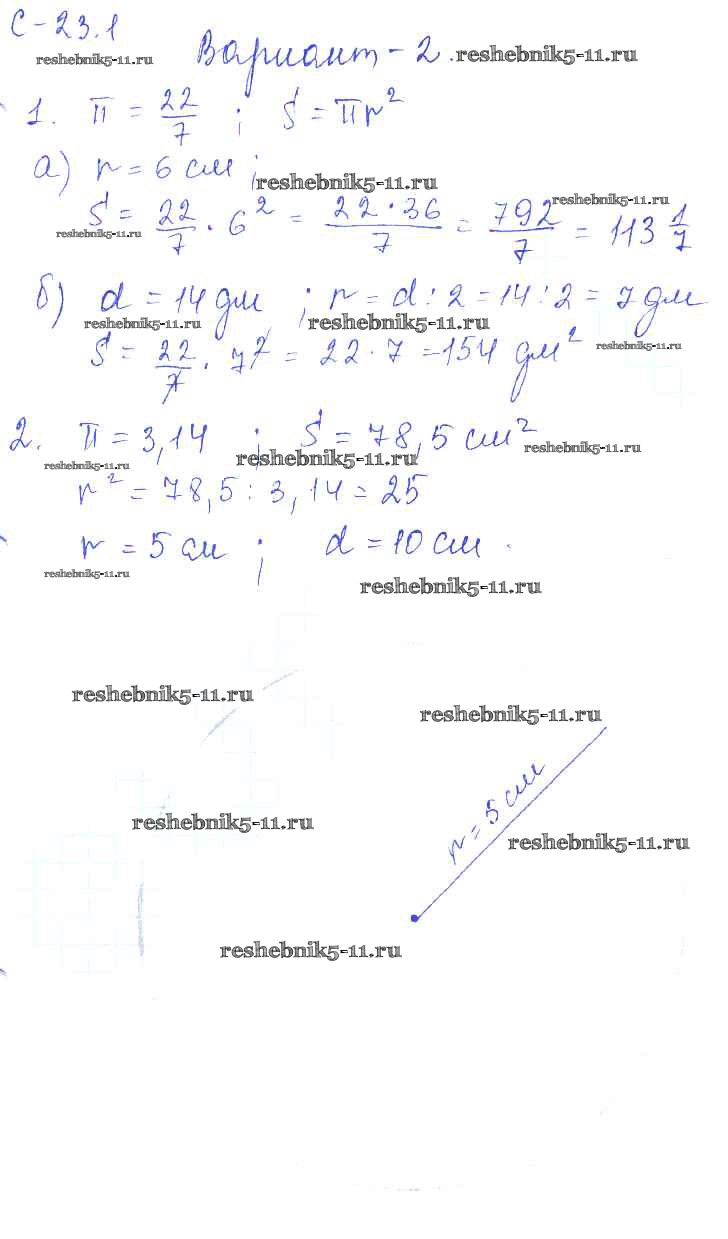 С-23.1
reshebnik5-11.ru Вариант-2. reshebnik5-11.ru
1. π = 22/7 ; S = πr²
а) r = 6 см ;
reshebnik5-11.ru
S = 22/7 · 6² = 22·36/7 = 792/7 = 113 1/7
reshebnik5-11.ru reshebnik5-11.ru
б) d = 14 дм ; r = d : 2 = 14 : 2 = 7 дм
reshebnik5-11.ru reshebnik5-11.ru
S = 22/7 · 7² = 22 · 7 = 154 дм² reshebnik5-11.ru
2. π = 3,14 ; S = 78,5 см²
reshebnik5-11.ru reshebnik5-11.ru reshebnik5-11.ru
r² = 78,5 : 3,14 = 25
r = 5 см ; d = 10 см.
reshebnik5-11.ru reshebnik5-11.ru
reshebnik5-11.ru
reshebnik5-11.ru
r = 5 см
reshebnik5-11.ru
reshebnik5-11.ru
reshebnik5-11.ru